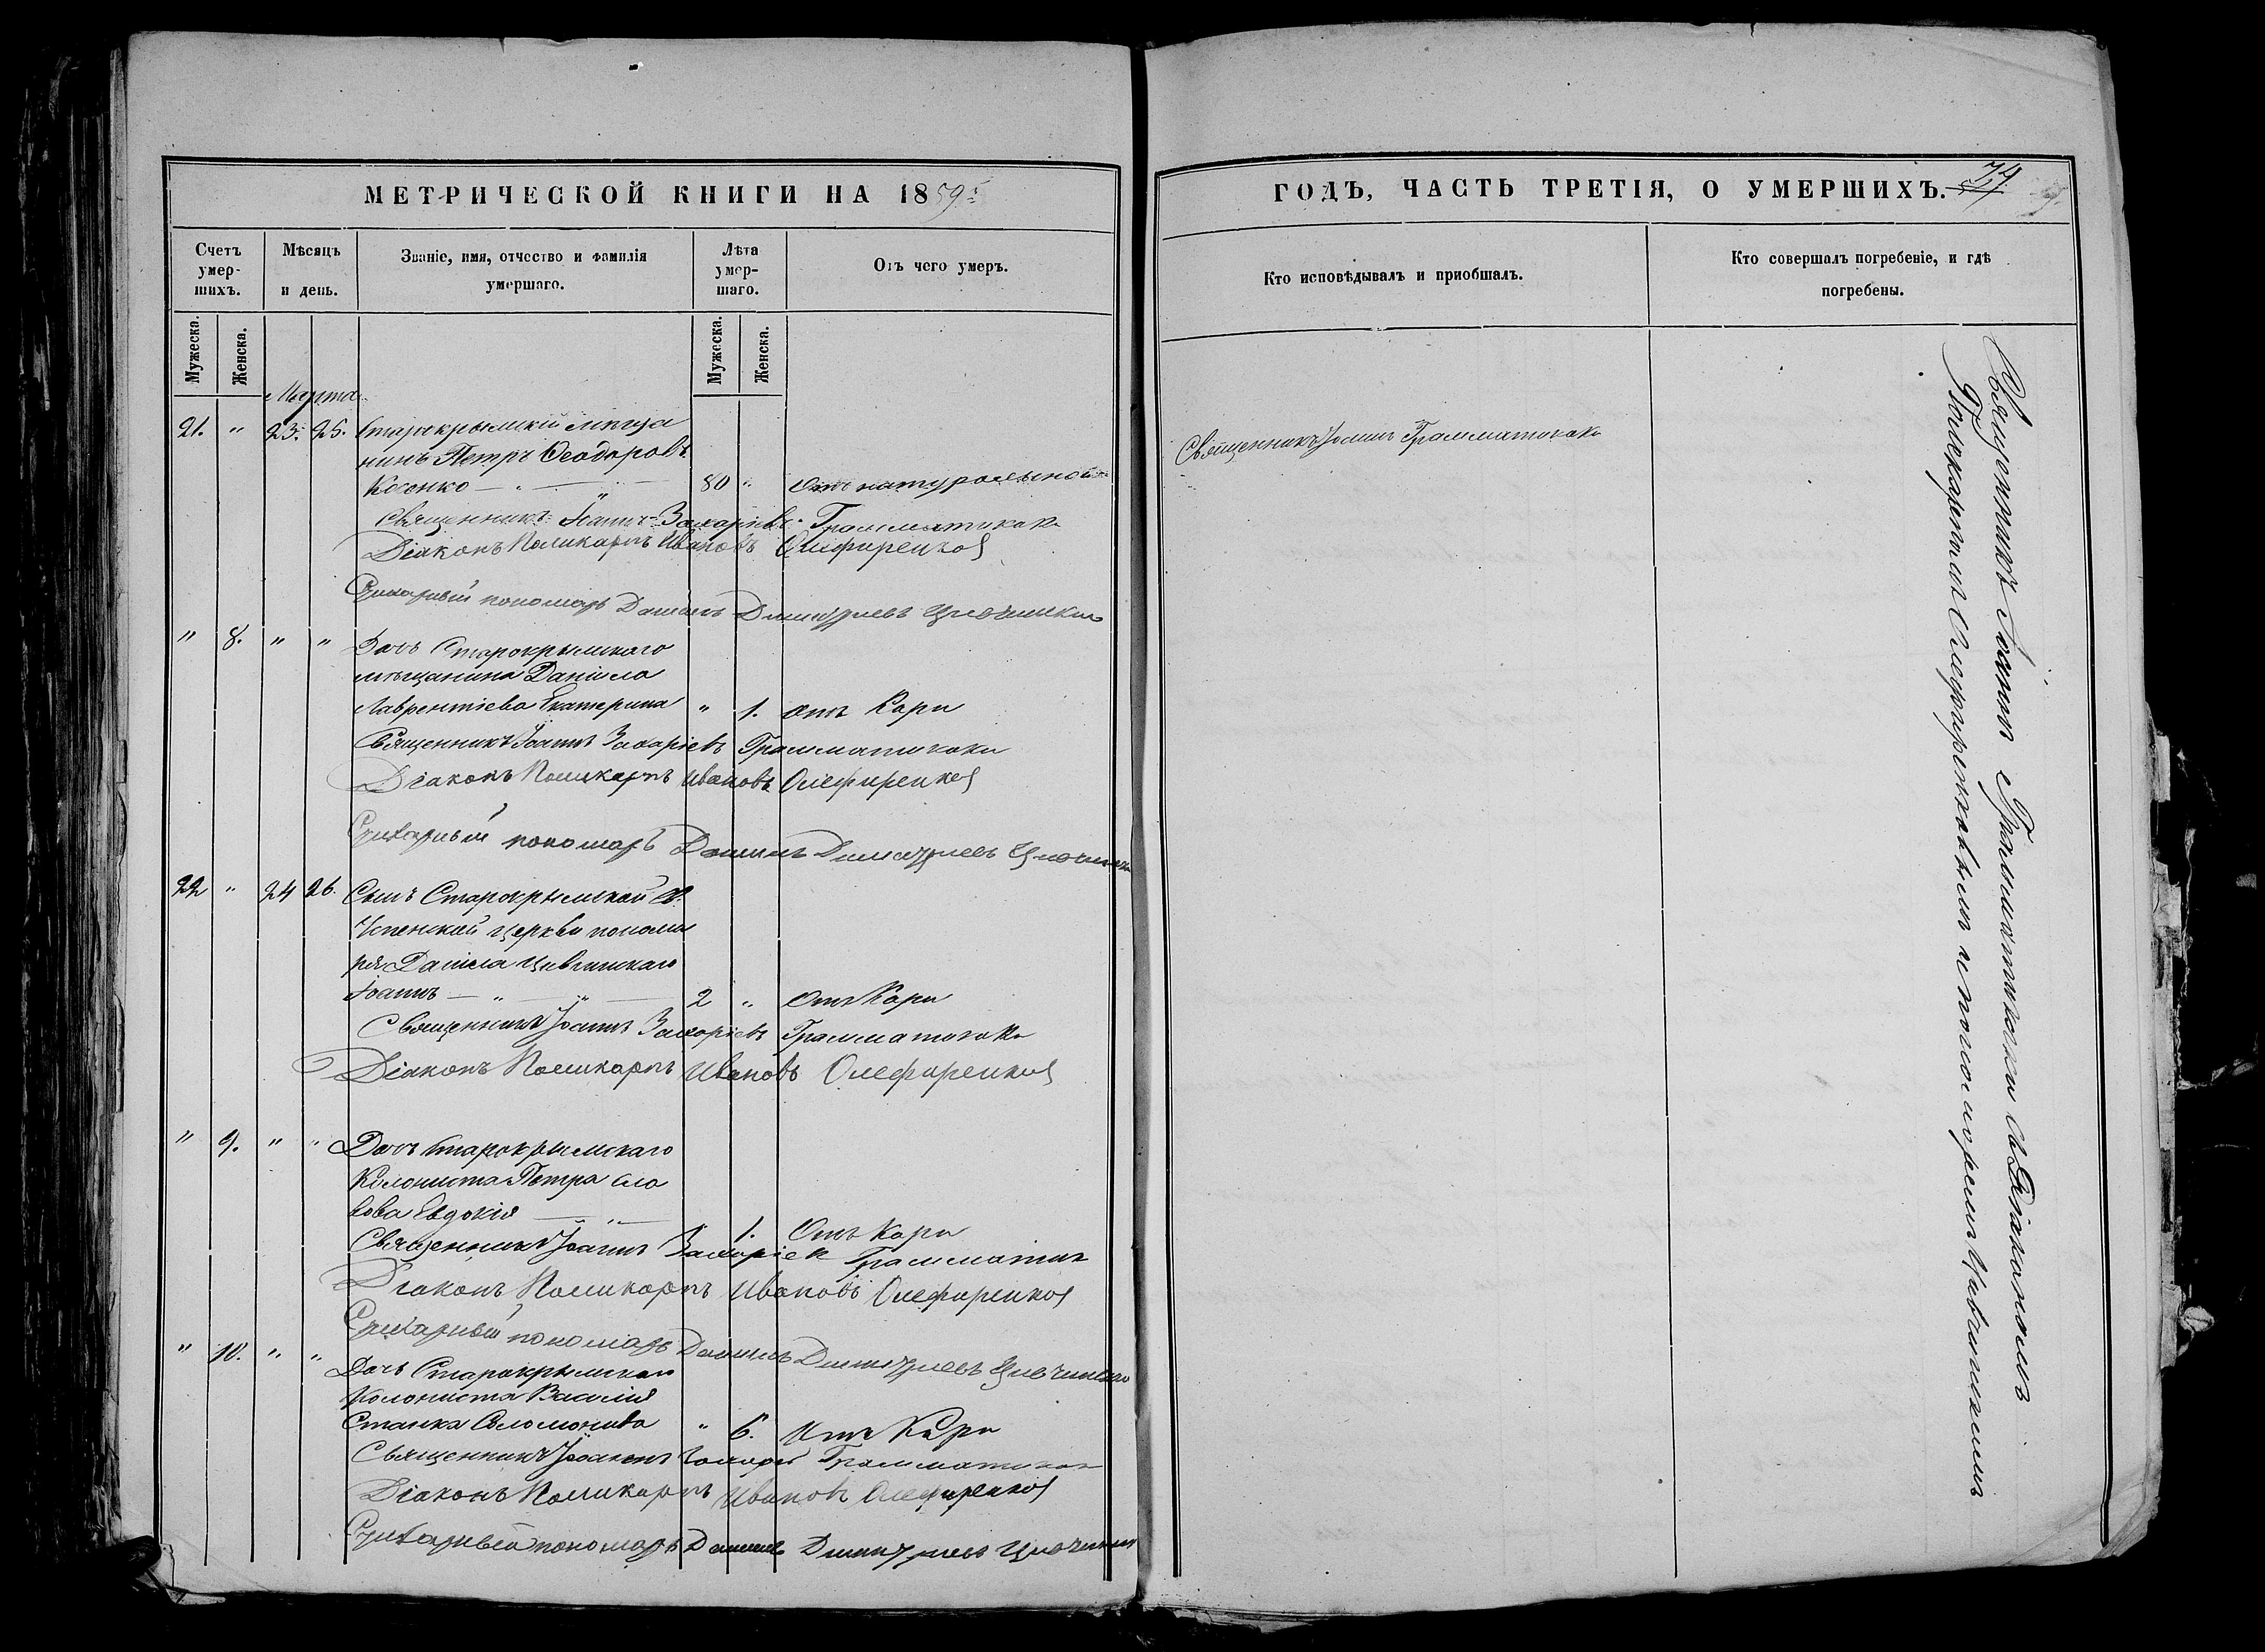 МЕТРИЧЕСКОЙ КНИГИ НА 1859
Счетъ умер-шихъ.
Мѣсяцъ и день.
Званіе, имя, отчество и фамилія умершаго.
Лѣта умер-шаго.
Отъ чего умеръ.
Мужеска.
Женска.
Мужеска.
Женска.
Марта
21. " 23. 25. Старокрымскій мѣща
нинъ Петръ Ѳеодоровъ
Косенко — " — 80 " Отъ натуральной
Священникъ Іоаннъ Захаріевъ Грамматикаки
Діаконъ Поликарпъ Ивановъ Олефиренко
пономарь Даніилъ Димитріевъ
" 8. " " Дочь Старокрымскаго
мѣщанина Даніила
Лаврентіева Екатерина " 1. отъ Кори
Священникъ Іоаннъ Захаріевъ Грамматикаки
Діаконъ Поликарпъ Ивановъ Олефиренко
пономарь Даніилъ Димитріевъ
22 " 24 26. Сынъ Старокрымской
Успенской церкви понома
ря Даніила Цивчинскаго
Іоаннъ — " — " — 2 " Отъ Кори
Священникъ Іоаннъ Захаріевъ Грамматикаки
Діаконъ Поликарпъ Ивановъ Олефиренко
" 9. " " Дочь Старокрымскаго
Колониста Петра Сла
вова Евдокія — " — 1. Отъ Кори
Священникъ Іоаннъ Захаріев Грамматик
Діаконъ Поликарпъ Ивановъ Олефиренко
пономарь Даніилъ Димитріевъ
" 10. " " Дочь Старокрымскаго
Колониста Василія
Станка Соломонида " 6. Отъ Кори
Священникъ Іоаннъ Захарі Грамматикаки
Діаконъ Поликарпъ Ивановъ Олефиренко
пономарь Даніилъ Димитріевъ
ГОДЪ, ЧАСТЬ ТРЕТІЯ, О УМЕРШИХЪ.
Кто исповѣдывалъ и приобщалъ.
Кто совершалъ погребеніе, и гдѣ погребены.
Священникъ Іоаннъ Грамматикаки
Священникъ Іоаннъ Грамматикаки съ Діакономъ
Поликарпомъ Олефиренковымъ и пономаремъ Цивчинскимъ